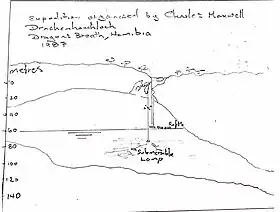 Expedition organised by Charles Maxwell
Drachenhauchloch
Dragons Breath, Namibia
1987
metres
20
40
60
80
100
120
140
Submersible
Lamp